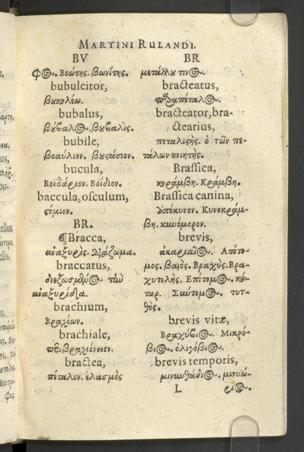 MARTINI RULANDI.
BV
φος. Βοώτης. βωνίτης.
bubulcitor,
βυκολέω.
bubalus,
βύβαλος. βυβαλίς.
bubile,
βοαύλιον. βυστάσιον.
bucula,
Βοϊδάριον. Βοίδιον.
baccula, osculum,
στόμιον.
BR.
¶Bracca,
ἀναξυρίς.
braccatus,
ἀναξυρίδα.
brachium,
Βραχίων.
brachiale,
περιβραχιόνιον.
bractea,
πέταλον. ἐλασμὸς
BR
μετάλλου τινος.
bracteatus,
bracteator, bra-
ctearius,
πεταλιστής. ὁ τῶν πε-
τάλων ποιητής.
Brassica,
κοράμβη. Κράμβη.
Brassica canina,
ἀπόκυνον. Κυνοκράμ-
βη. κυνόμορον.
brevis,
ἀκαριαῖος. Απίτο-
μος. βαιὸς. Βραχύς. Βρα-
χυτελής. Επίτομος. κύ-
παρ. Σμύτομος. τυτ-
θὸς.
brevis vitæ,
Βραχύβιος. Μικρό-
βιος. ὀλιγόβιος.
brevis temporis,
μινυνθάδιος. μινυώ-
L
ριος.